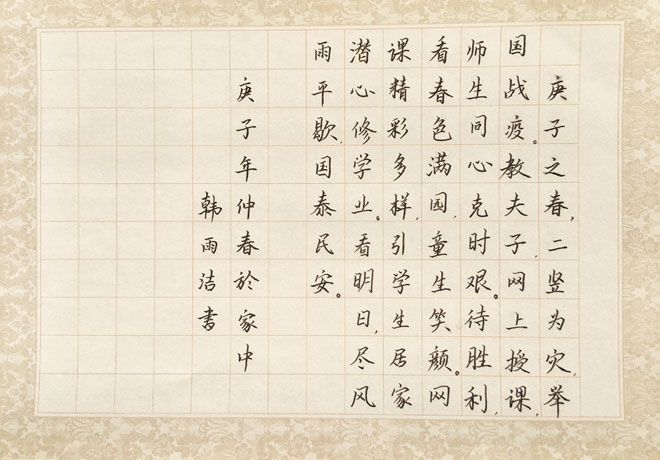 庚子之春,二竖为灾,举
国战疫。教夫子,网上授课,
师生同心克时艰。待胜利,
看春色满园,童生笑颜。网
课精彩多样,引学生居家
潜心修学业。看明日,尽风
雨平歇,国泰民安。
庚子年仲春於家中
韩雨洁书